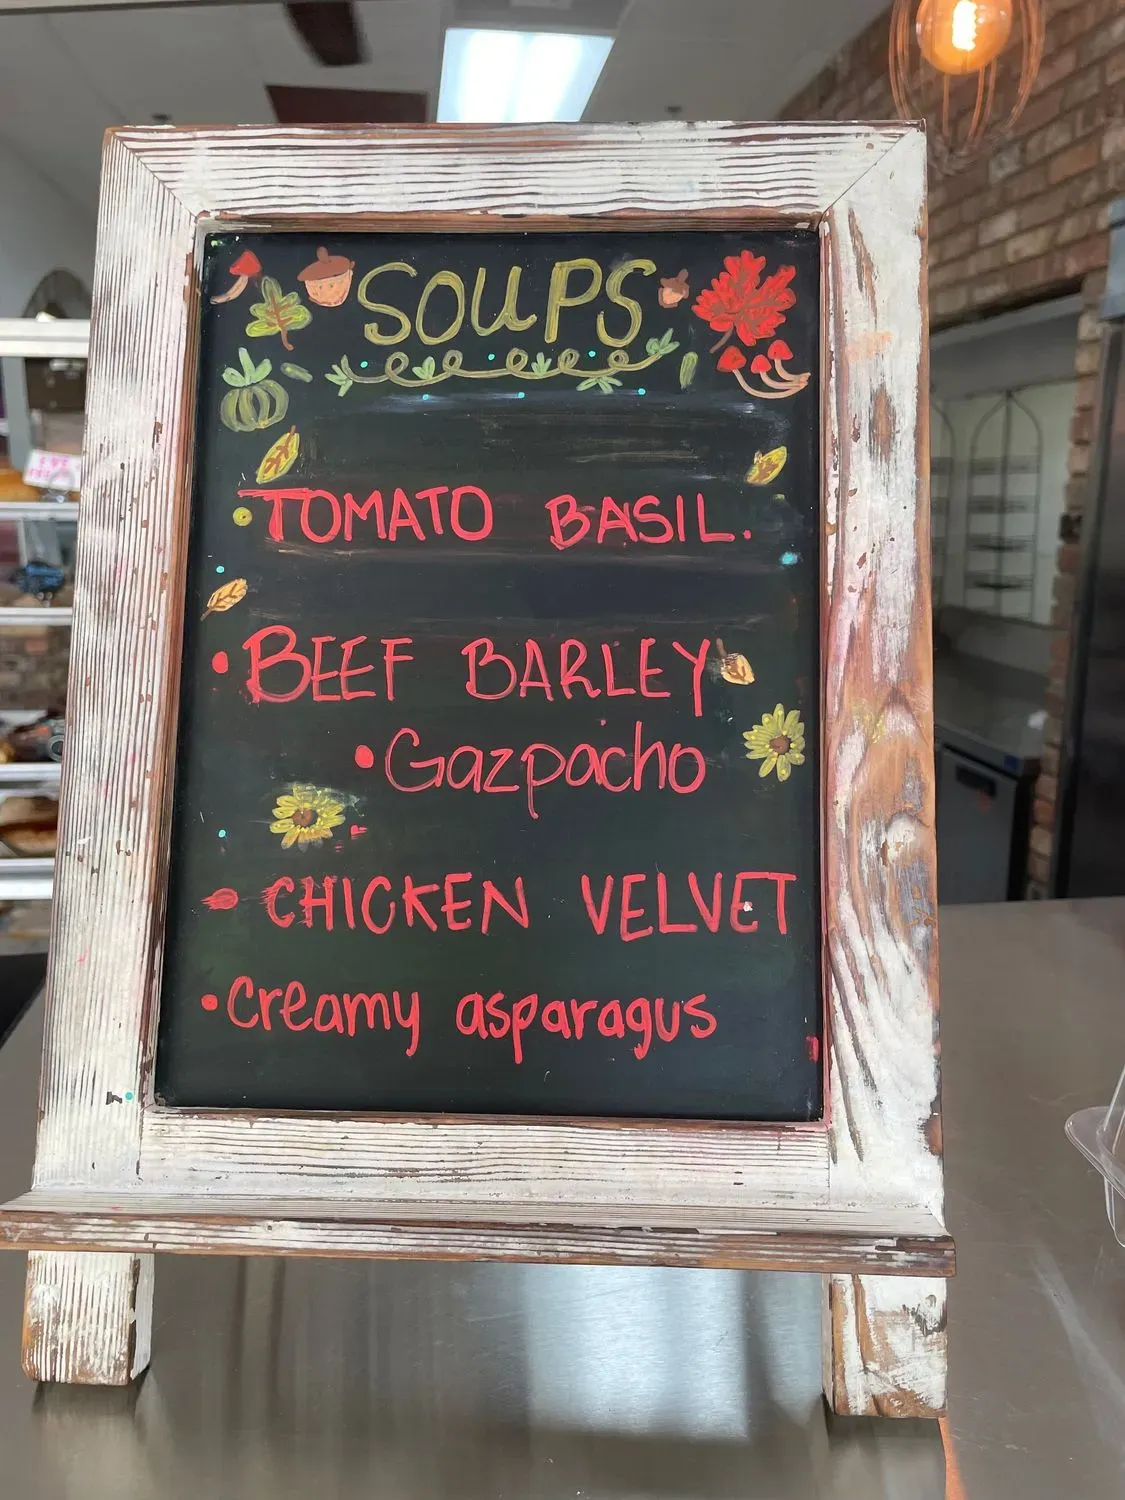 SOUPS
• TOMATO BASIL.
• BEEF BARLEY
• Gazpacho
• CHICKEN VELVET
• Creamy asparagus